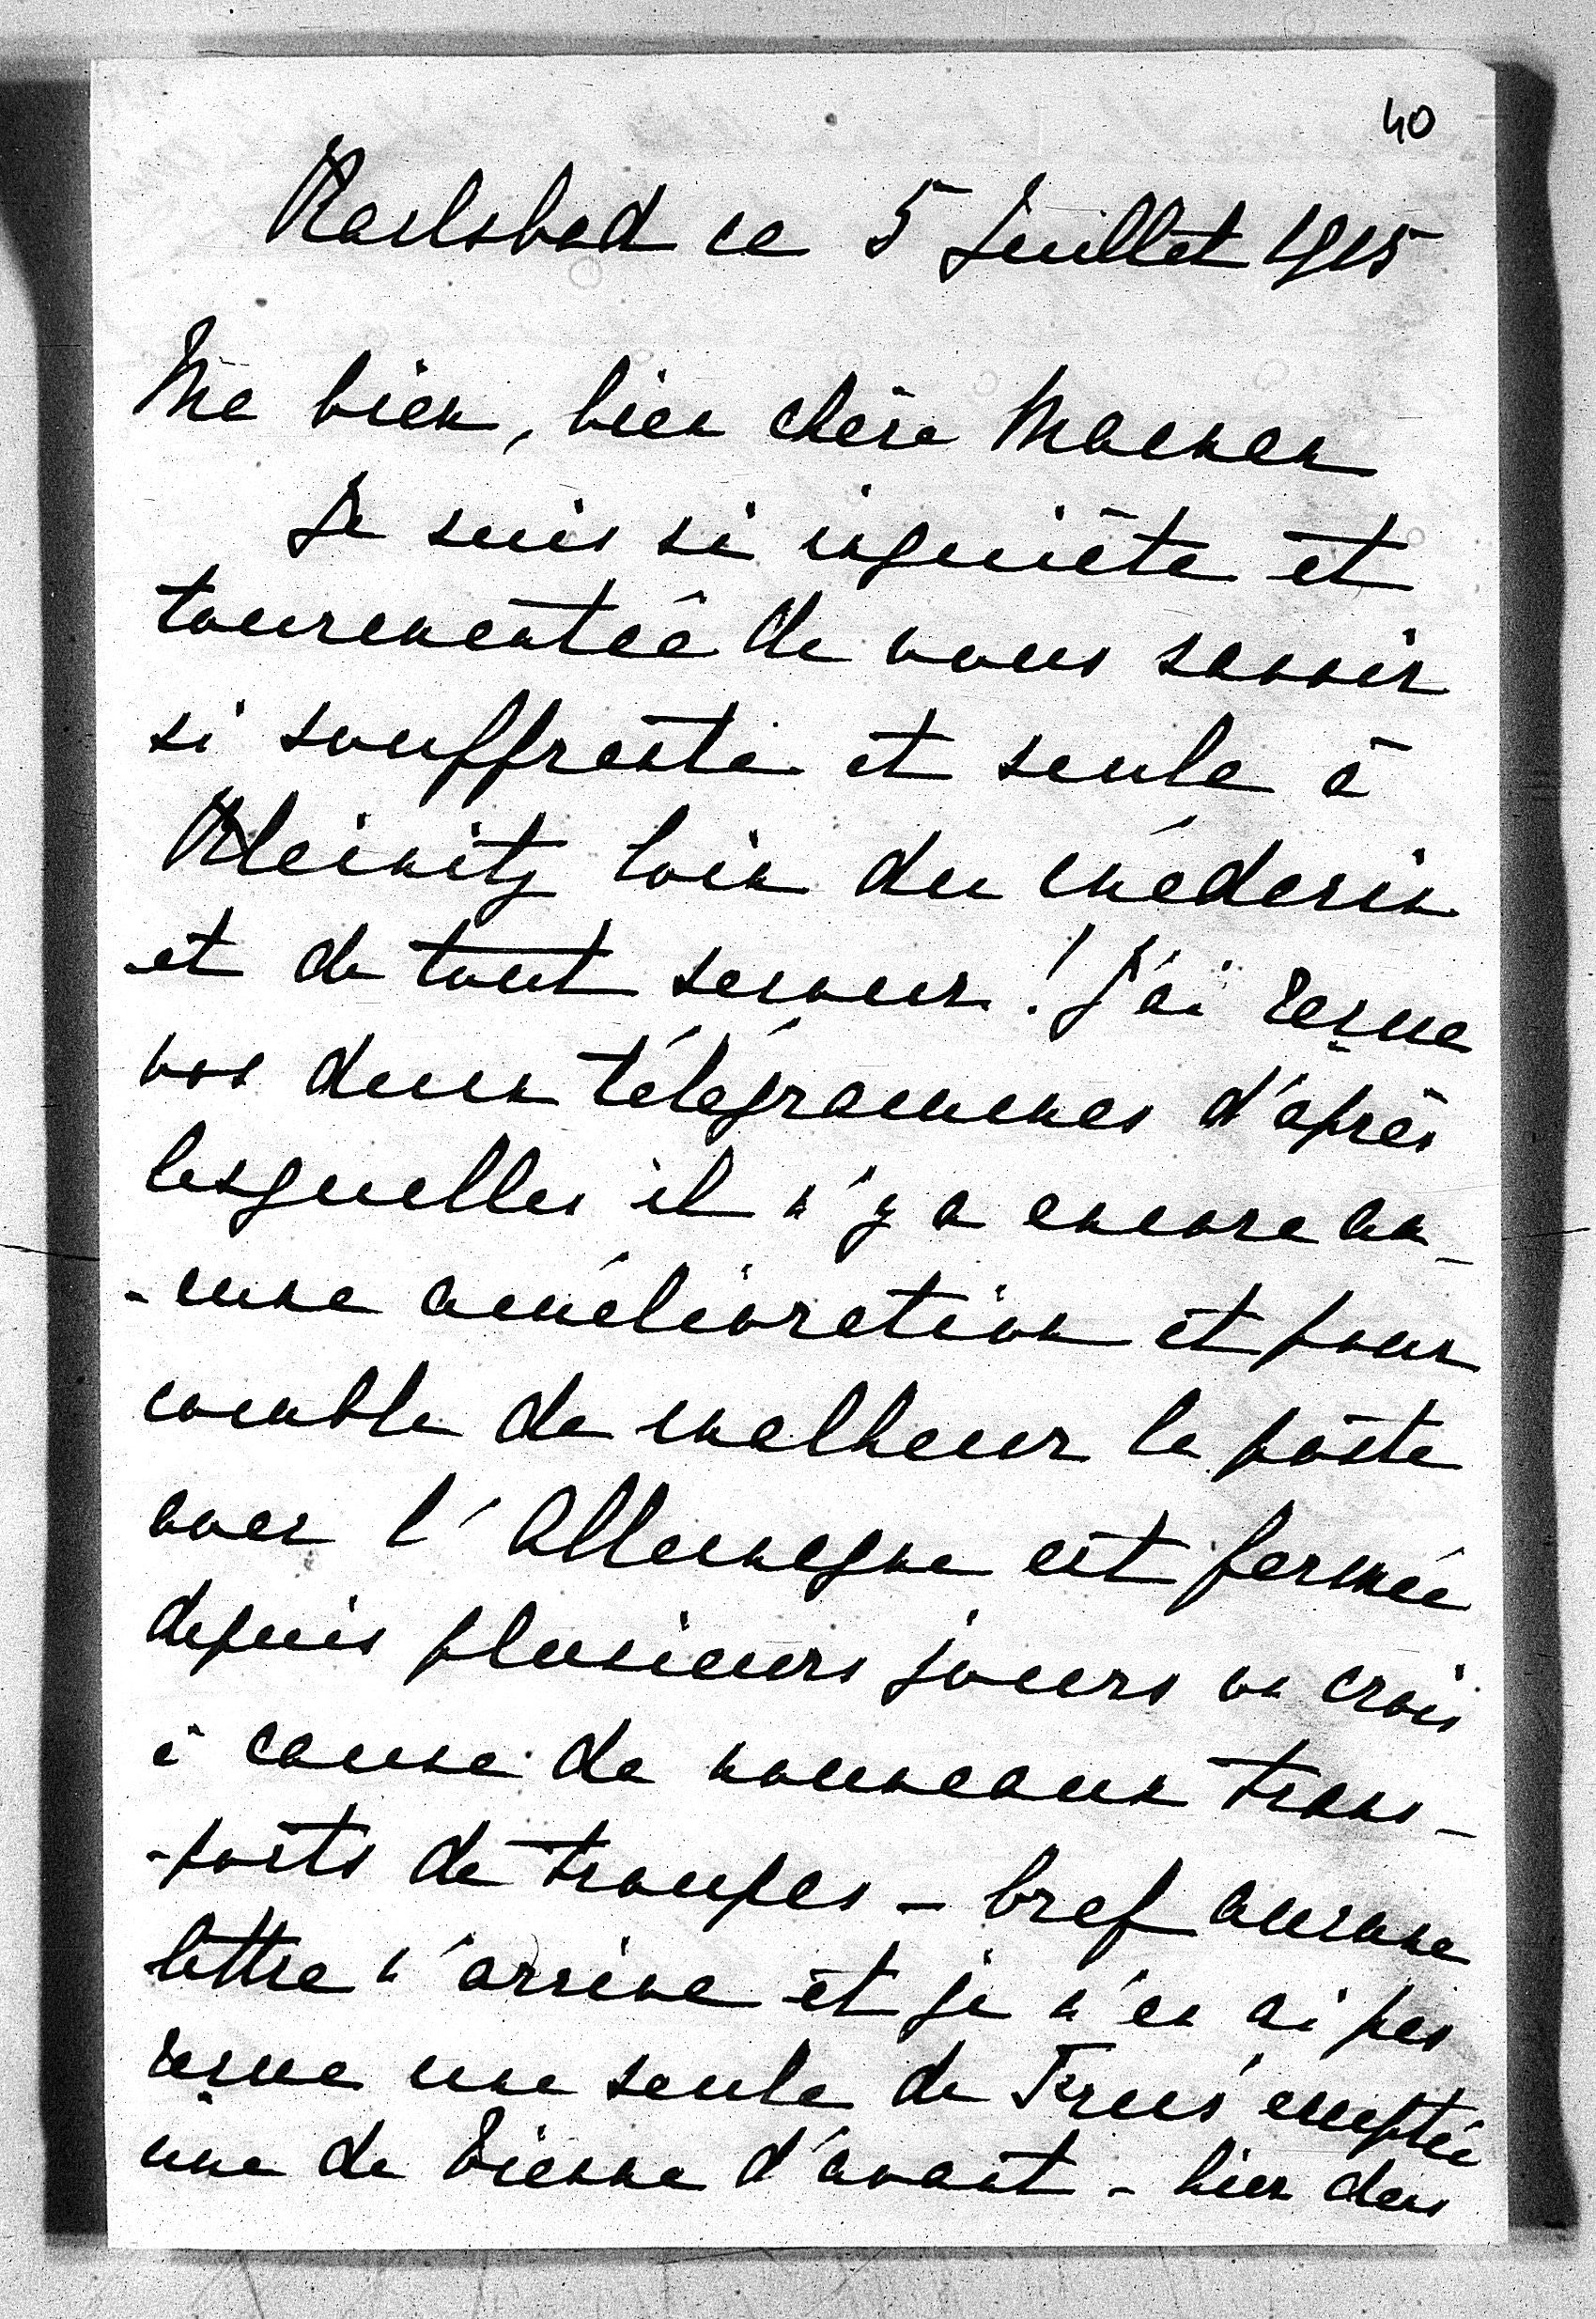 40
Karlsbad ce 5 Juillet 1915
Ma bien, bien chère Maman
Je suis si inquiète et
tourmentée de vous savoir
si souffrante et seule à
Kleinitz loin du médecin
et de tout secours! J'ai reçue
vos deux télégrammes d'après
lesquelles il n'y a encore au-
-cune amélioration et pour
comble de malheur la pôste
avec l'Allemagne est fermée
depuis plusieurs jours on crois
à cause de nouveaux trans-
-ports de troupes - bref aucune
lettre n'arrive et je n'en ai pas
reçue une seule de exceptée
une de Vienne d'avant - hier dans